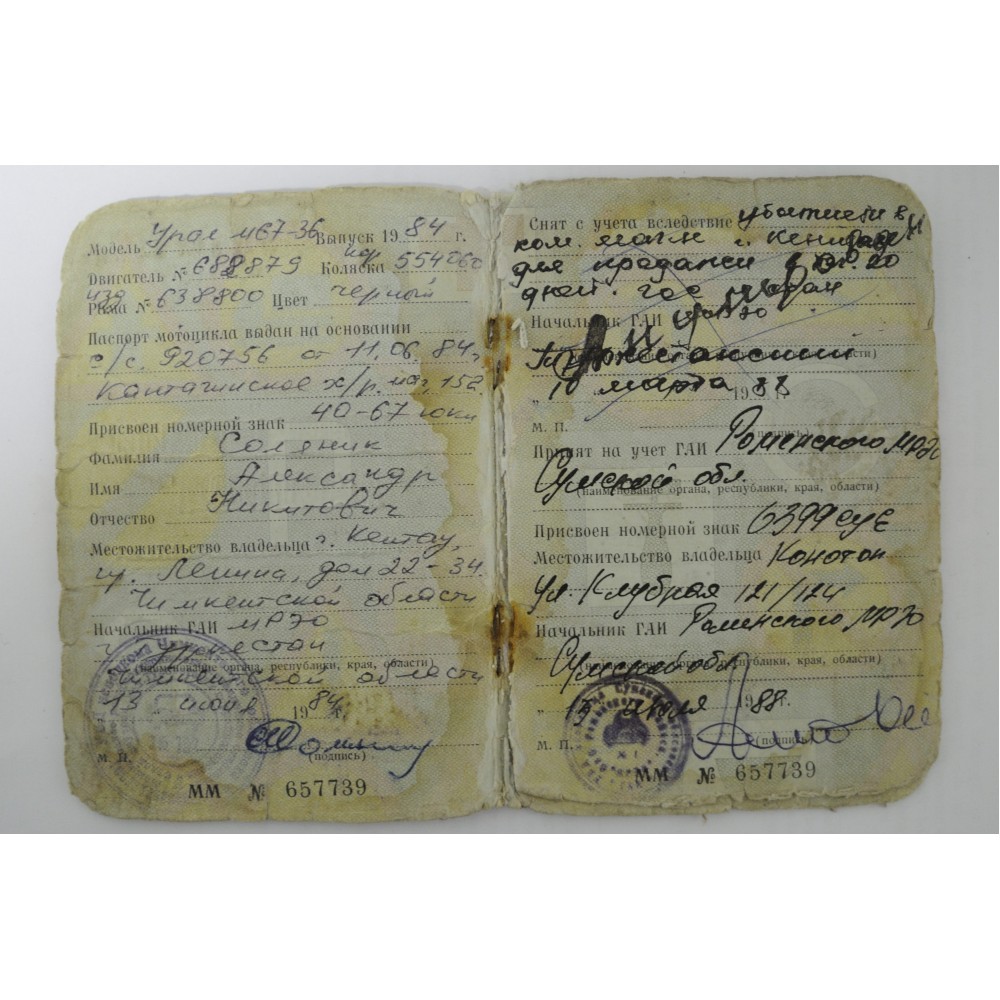 Модель Урал М67-36 Выпуск 1984 г.
Двигатель № 688879 Коляска 554060
Рама № 638800 Цвет черный
Паспорт мотоцикла выдан на основании
с/с. 920756 от 11.06.84 г.
Кантагинское х/р. маг. 152
Присвоен номерной знак 40-67 юки
Фамилия Соляник
Имя Александр
Отчество Никитович
Местожительство владельца г. Кентау,
ул. Ленина, дом 22-34
Чимкентской области
Начальник ГАИ МРЭО
(наименование органа, республики, края, области)
Чимкентской области
13 июня 1984 г.
М. П. (подпись)
ММ № 657739
Снят с учета вследствие
ком. магаз г.
для продажи 20
дней.
Начальник ГАИ
Туркестанский
10 марта 1988 г.
М. П. (подпись)
Принят на учет ГАИ Роменского МРЭО
Сумской обл.
(наименование органа, республики, края, области)
Присвоен номерной знак 6399 суе
Местожительство владельца Конотоп
ул. Клубная 121/124
Начальник ГАИ Роменского МРЭО
Сумской обл
(наименование органа, республики, края, области)
1988
М. П. (подпись)
ММ № 657739